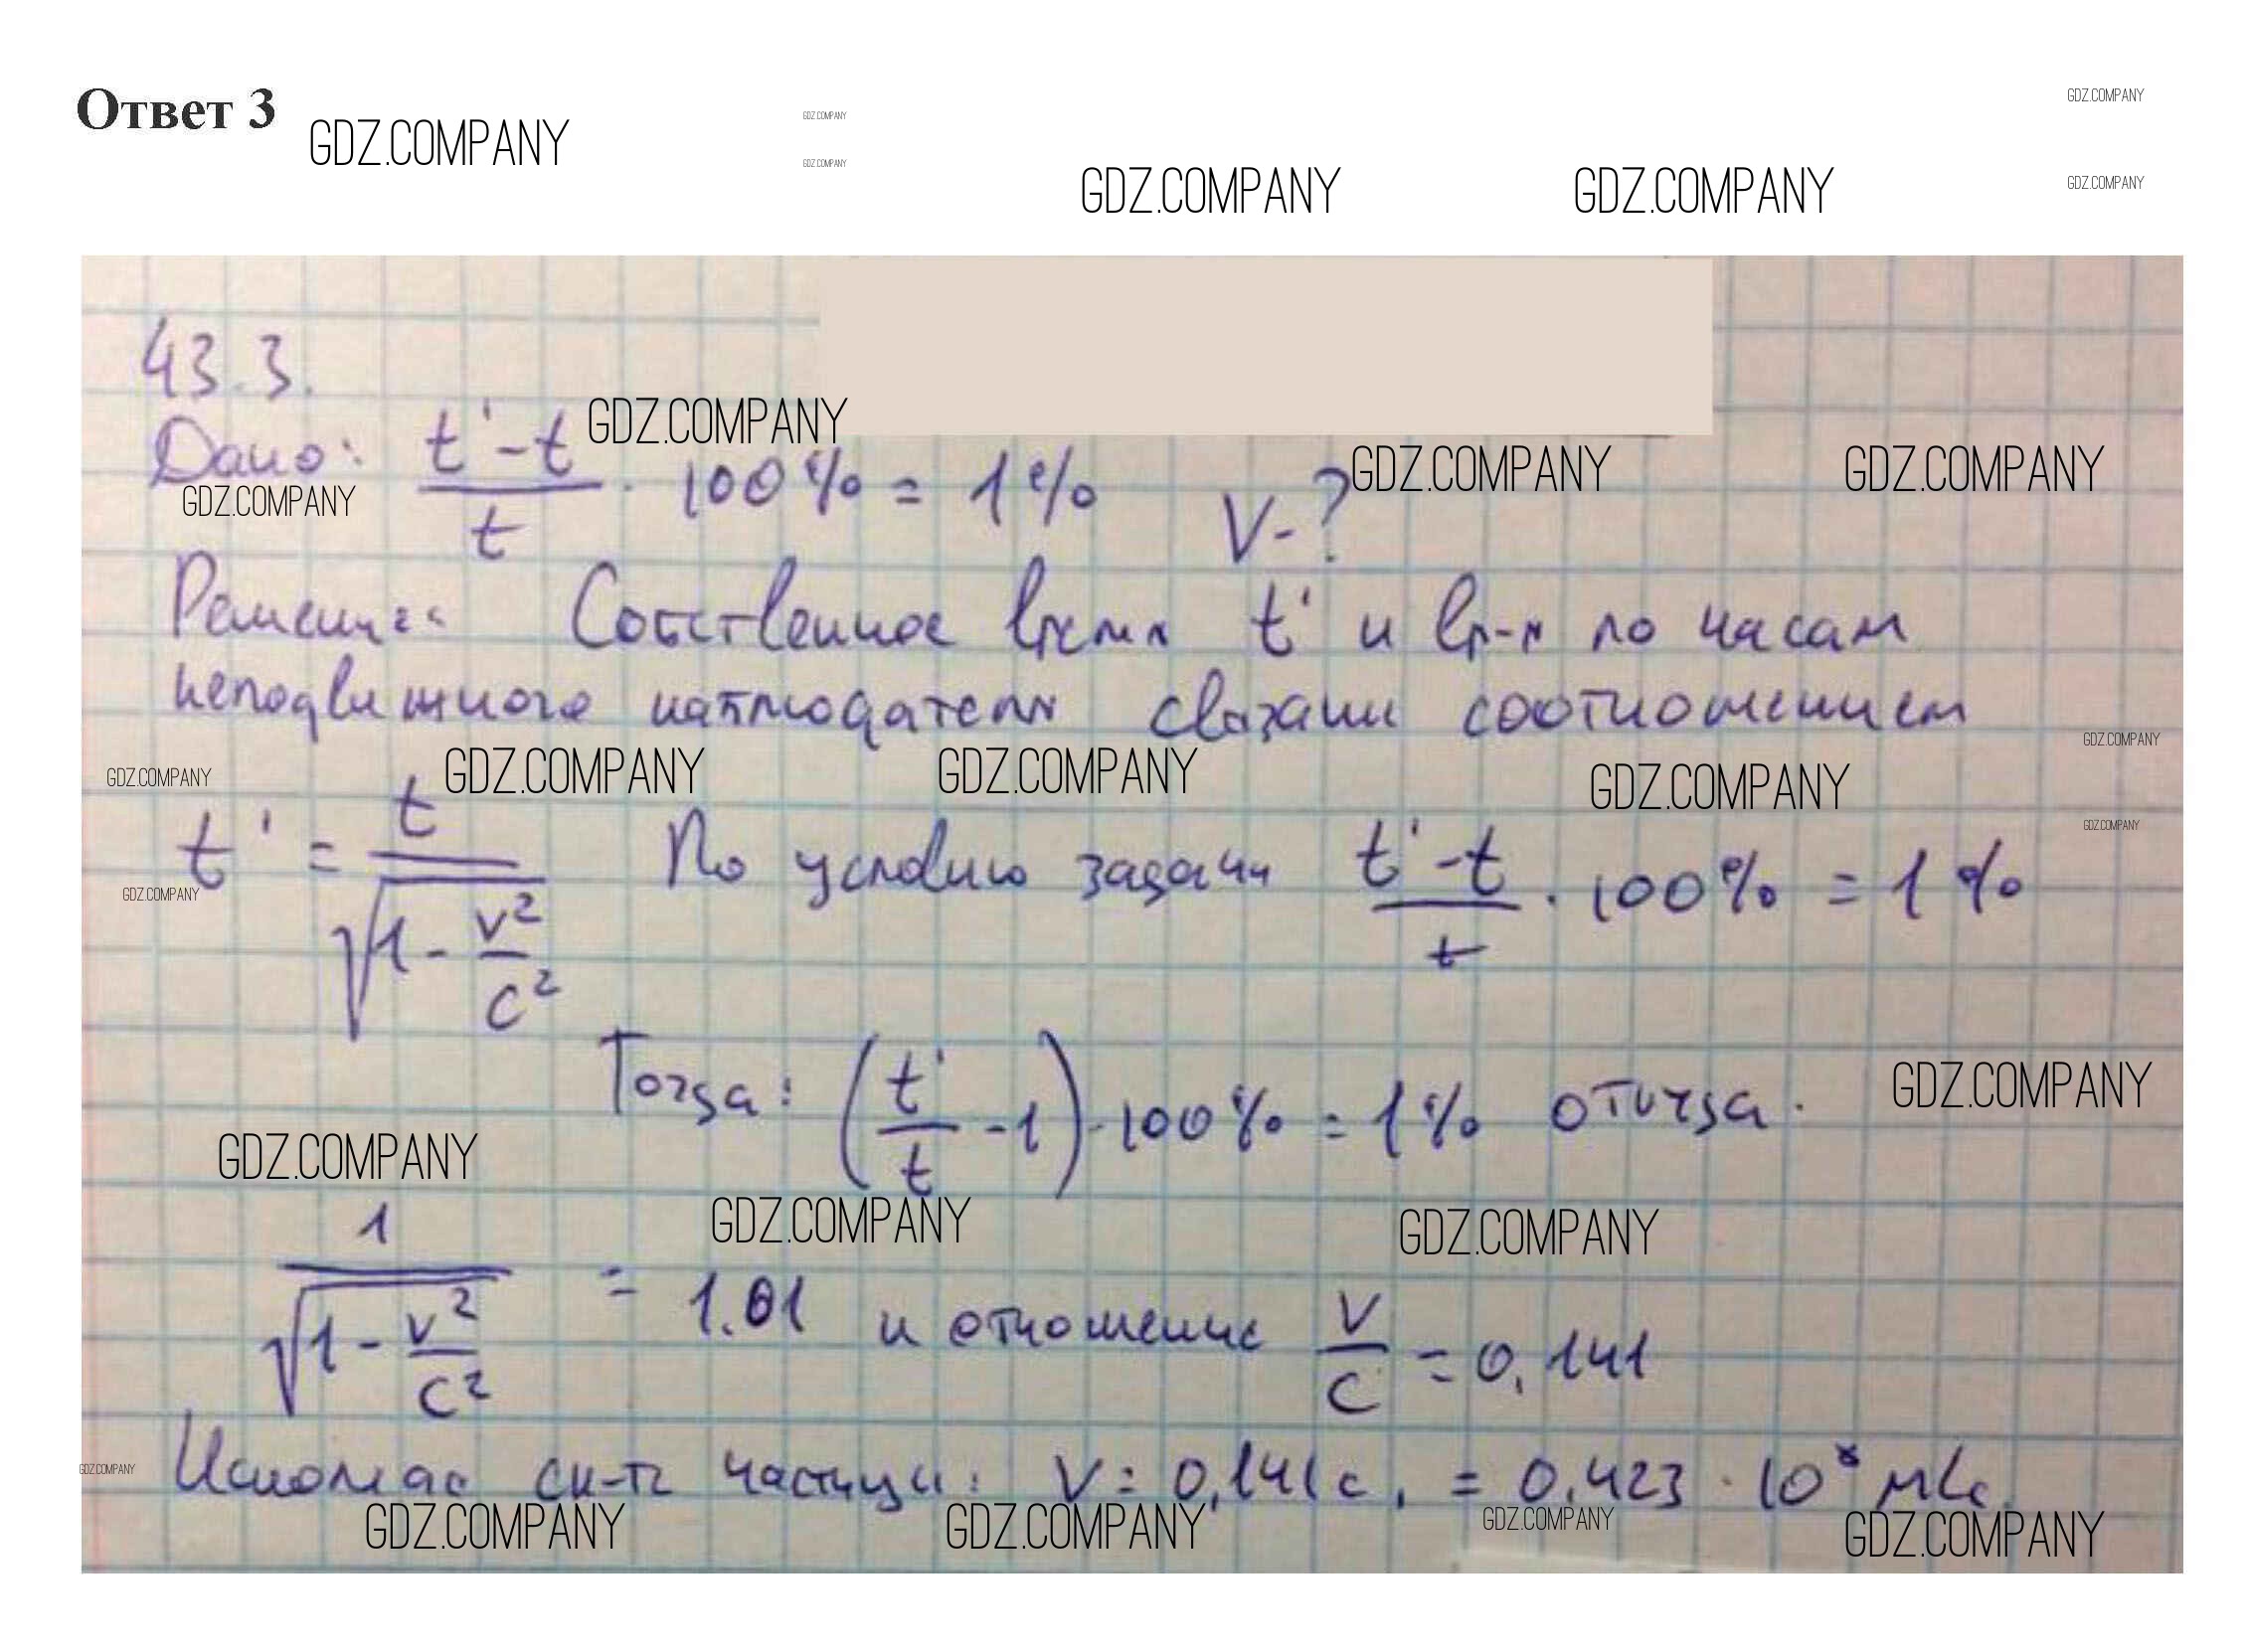 Ответ 3
GDZ.COMPANY
GDZ.COMPANY
GDZ.COMPANY
GDZ.COMPANY
GDZ.COMPANY
GDZ.COMPANY
GDZ.COMPANY
43.3.
GDZ.COMPANY
Дано: (t' - t)/t · 100% = 1% V-?
GDZ.COMPANY
GDZ.COMPANY
GDZ.COMPANY
Решение: Собственное время t' и вр-я по часам
неподвижного наблюдателя связаны соотношением
GDZ.COMPANY
GDZ.COMPANY
GDZ.COMPANY
GDZ.COMPANY
GDZ.COMPANY
GDZ.COMPANY
t' = t/√(1 - v²/c²) По условию задачи (t' - t)/t · 100% = 1%
GDZ.COMPANY
Тогда: (t'/t - 1) · 100% = 1% откуда:
GDZ.COMPANY
GDZ.COMPANY
GDZ.COMPANY
GDZ.COMPANY
1/√(1 - v²/c²) = 1.01 и отношение V/C = 0,141
Искомая ск-ть частицы: V = 0,141c, = 0.423 · 10⁸ м/с
GDZ.COMPANY
GDZ.COMPANY
GDZ.COMPANY
GDZ.COMPANY
GDZ.COMPANY